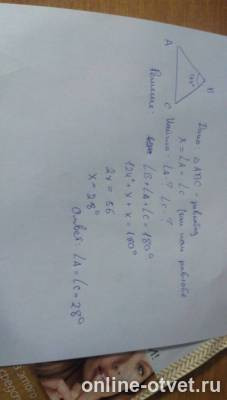 A
B
C
124°
Дано: △ABC - равнобед
x = ∠A = ∠C
Найти: ∠A - ? ∠C - ?
Решение:
∠B + ∠A + ∠C = 180°
124° + x + x = 180°
2x = 56
x = 28°
Ответ: ∠A = ∠C = 28°
online-otvet.ru